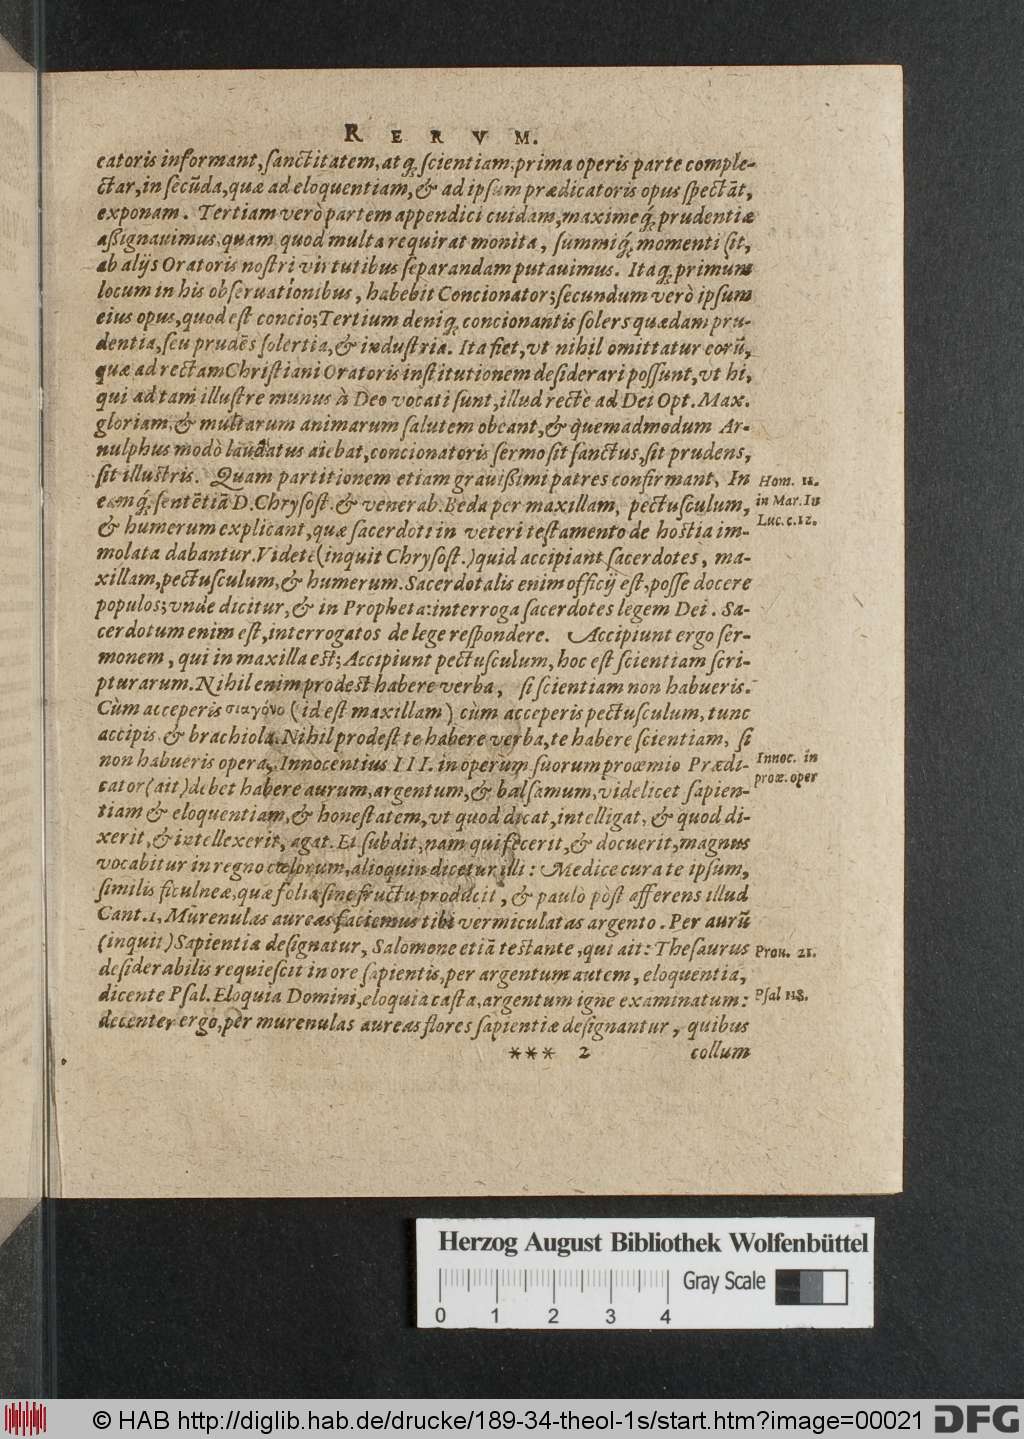 RERVM.
catoris informant, sanctitatem, atq; scientiam, prima operis parte comple-
ctar, in secūda, quæ ad eloquentiam, & ad ipsam prædicatoris opus spectāt,
exponam. Tertiam verò partem appendici cuidam, maximeq́; prudentiæ
aßignauimus, quam quod multa requirat monita, summiq́; momenti sit,
ab alijs Oratoris nostri virtutibus separandam putauimus. Itaq; primum
locum in his obseruationibus, habebit Concionator; secundum verò ipsum
eius opus, quod est concio; Tertium deniq; concionantis solers quædam pru-
dentia, seu prudēs solertia, & industria. Ita fiet, vt nihil omittatur eorū,
quæ ad rectam Christiani Oratoris institutionem desiderari possunt, vt hi,
qui ad tam illustre munus à Deo vocati sunt, illud rectè ad Dei Opt. Max.
gloriam, & multarum animarum salutem obeant, & quemadmodum Ar-
nulphus modò laudatus aiebat, concionatoris sermo sit sanctus, sit prudens,
sit illustris. Quam partitionem etiam grauißimi patres confirmant, In
eamq́; sentētiā D. Chrysost. & venerab. Beda per maxillam, pectusculum,
& humerum explicant, quæ sacerdoti in veteri testamento de hostia im-
molata dabantur. Videte (inquit Chrysost.) quid accipiant sacerdotes, ma-
xillam, pectusculum, & humerum. Sacerdotalis enim officij est, posse docere
populos; vnde dicitur, & in Propheta: interroga sacerdotes legem Dei. Sa-
cerdotum enim est, interrogatos de lege respondere. Accipiunt ergo ser-
monem, qui in maxilla est; Accipiunt pectusculum, hoc est scientiam scri-
pturarum. Nihil enim prodest habere verba, si scientiam non habueris.
Cùm acceperis σιαγόνο (id est maxillam) cùm acceperis pectusculum, tunc
accipis & brachiola. Nihil prodest te habere verba, te habere scientiam, si
non habueris opera, Innocentius III. in operum suorum proœmio Prædi-
cator (ait) debet habere aurum, argentum, & balsamum, videlicet sapien-
tiam & eloquentiam, & honestatem, vt quod dicat, intelligat, & quod di-
xerit, & intellexerit, agat. Et subdit, nam qui fecerit, & docuerit, magnus
vocabitur in regno cælorum, alioquin dicetur illi: Medice cura te ipsum,
similis ficulneæ, quæ folia sine fructu producit, & paulò pòst afferens illud
Cant. 1, Murenulas aureas faciemus tibi vermiculatas argento. Per aurū
(inquit) Sapientia designatur, Salomone etiā testante, qui ait: Thesaurus
desiderabilis requiescit in ore sapientis, per argentum autem, eloquentia,
dicente Psal. Eloquia Domini, eloquia casta, argentum igne examinatum:
decenter ergo, per murenulas aureas flores sapientiæ designantur, quibus
*** 2 collum
Hom. 11.
in Mar. In
Luc. c. 12.
Innoc. in
proœ. oper
Prou. 21.
Psal 118.
Herzog August Bibliothek Wolfenbüttel
Gray Scale
0 1 2 3 4
© HAB http://diglib.hab.de/drucke/189-34-theol-1s/start.htm?image=00021
DFG